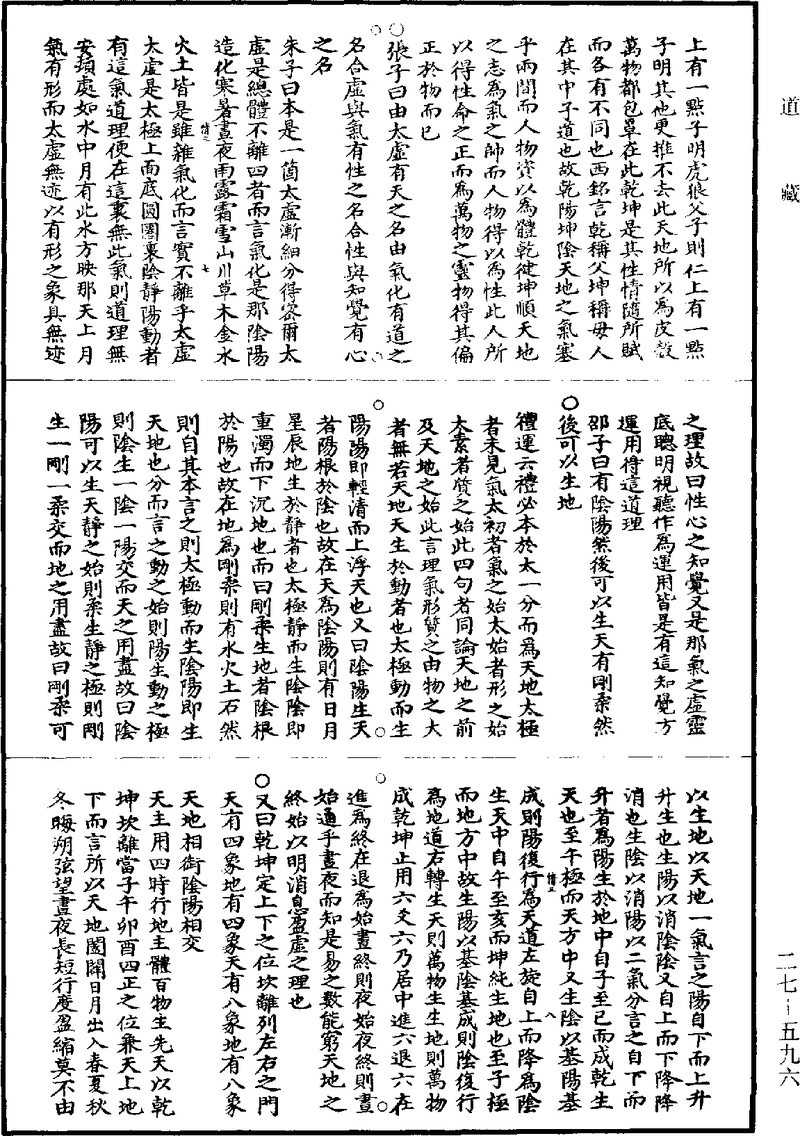 道藏
上有一點子明虎狼父子則仁上有一點
子明其他更推不去此天地所以為皮殼
萬物都包罩在此乾坤是其性情隨所賦
而各有不同也西銘言乾稱父坤稱母人
在其中子道也故乾陽坤陰天地之氣塞
乎兩間而人物資以為體乾健坤順天地
之志為氣之帥而人物得以為性此人所
以得性命之正而為萬物之靈物得其偏
正於物而已
○張子曰由太虛有天之名由氣化有道之
名合虛與氣有性之名合性與知覺有心
之名
朱子曰本是一箇太虛漸細分得密爾太
虛是總體不離四者而言氣化是那陰陽
造化寒暑晝夜雨露霜雪山川草木金水
火土皆是雖雜氣化而言實不離乎太虛
太虛是太極上面底圓圈裏陰靜陽動者
有這氣道理便在這裏無此氣則道理無
安頓處如水中月有此水方映那天上月
氣有形而太虛無迹以有形之象具無迹
之理故曰性心之知覺又是那氣之虛靈
底聰明視聽作為運用皆是有這知覺方
運用得這道理
邵子曰有陰陽然後可以生天有剛柔然
○後可以生地
禮運云禮必本於太一分而為天地太極
者未見氣太初者氣之始太始者形之始
太素者質之始此四句者同論天地之前
及天地之始此言理氣形質之由物之大
者無若天地天生於動者也太極動而生
陽陽即輕清而上浮天也又曰陰陽生天
者陽根於陰也故在天為陰陽則有日月
星辰地生於靜者也太極靜而生陰陰即
重濁而下沉地也而曰剛柔生地者陰根
於陽也故在地為剛柔則有水火土石然
則自其本言之則太極動而生陰陽即生
天地也分而言之動之始則陽生動之極
則陰生一陰一陽交而天之用盡故曰陰
陽可以生天靜之始則柔生靜之極則剛
生一剛一柔交而地之用盡故曰剛柔可
以生地以天地一氣言之陽自下而上升
升生也生陽以消陰陰又自上而下降降
消也生陰以消陽以二氣分言之自下而
升者為陽生於地中自子至巳而成乾生
天也至午極而天方中又生陰以基陽基
成則陽復行為天道左旋自上而降為陰
生天中自午至亥而坤純生地也至子極
而地方中故生陽以基陰基成則陰復行
為地道右轉生天則萬物生生地則萬物
成乾坤止用六爻六乃居中進六退六在
進為終在退為始晝終則夜始夜終則晝
始通乎晝夜而知是易之數能窮天地之
終始以明消息盈虛之理也
○又曰乾坤定上下之位坎離列左右之門
天有四象地有四象天有八象地有八象
天地相銜陰陽相交
天主用四時行地主體百物生先天以乾
坤坎離當子午卯酉四正之位乘天上地
下而言所以天地闔闢日月出入春夏秋
冬晦朔弦望晝夜長短行度盈縮莫不由
二七-五九六